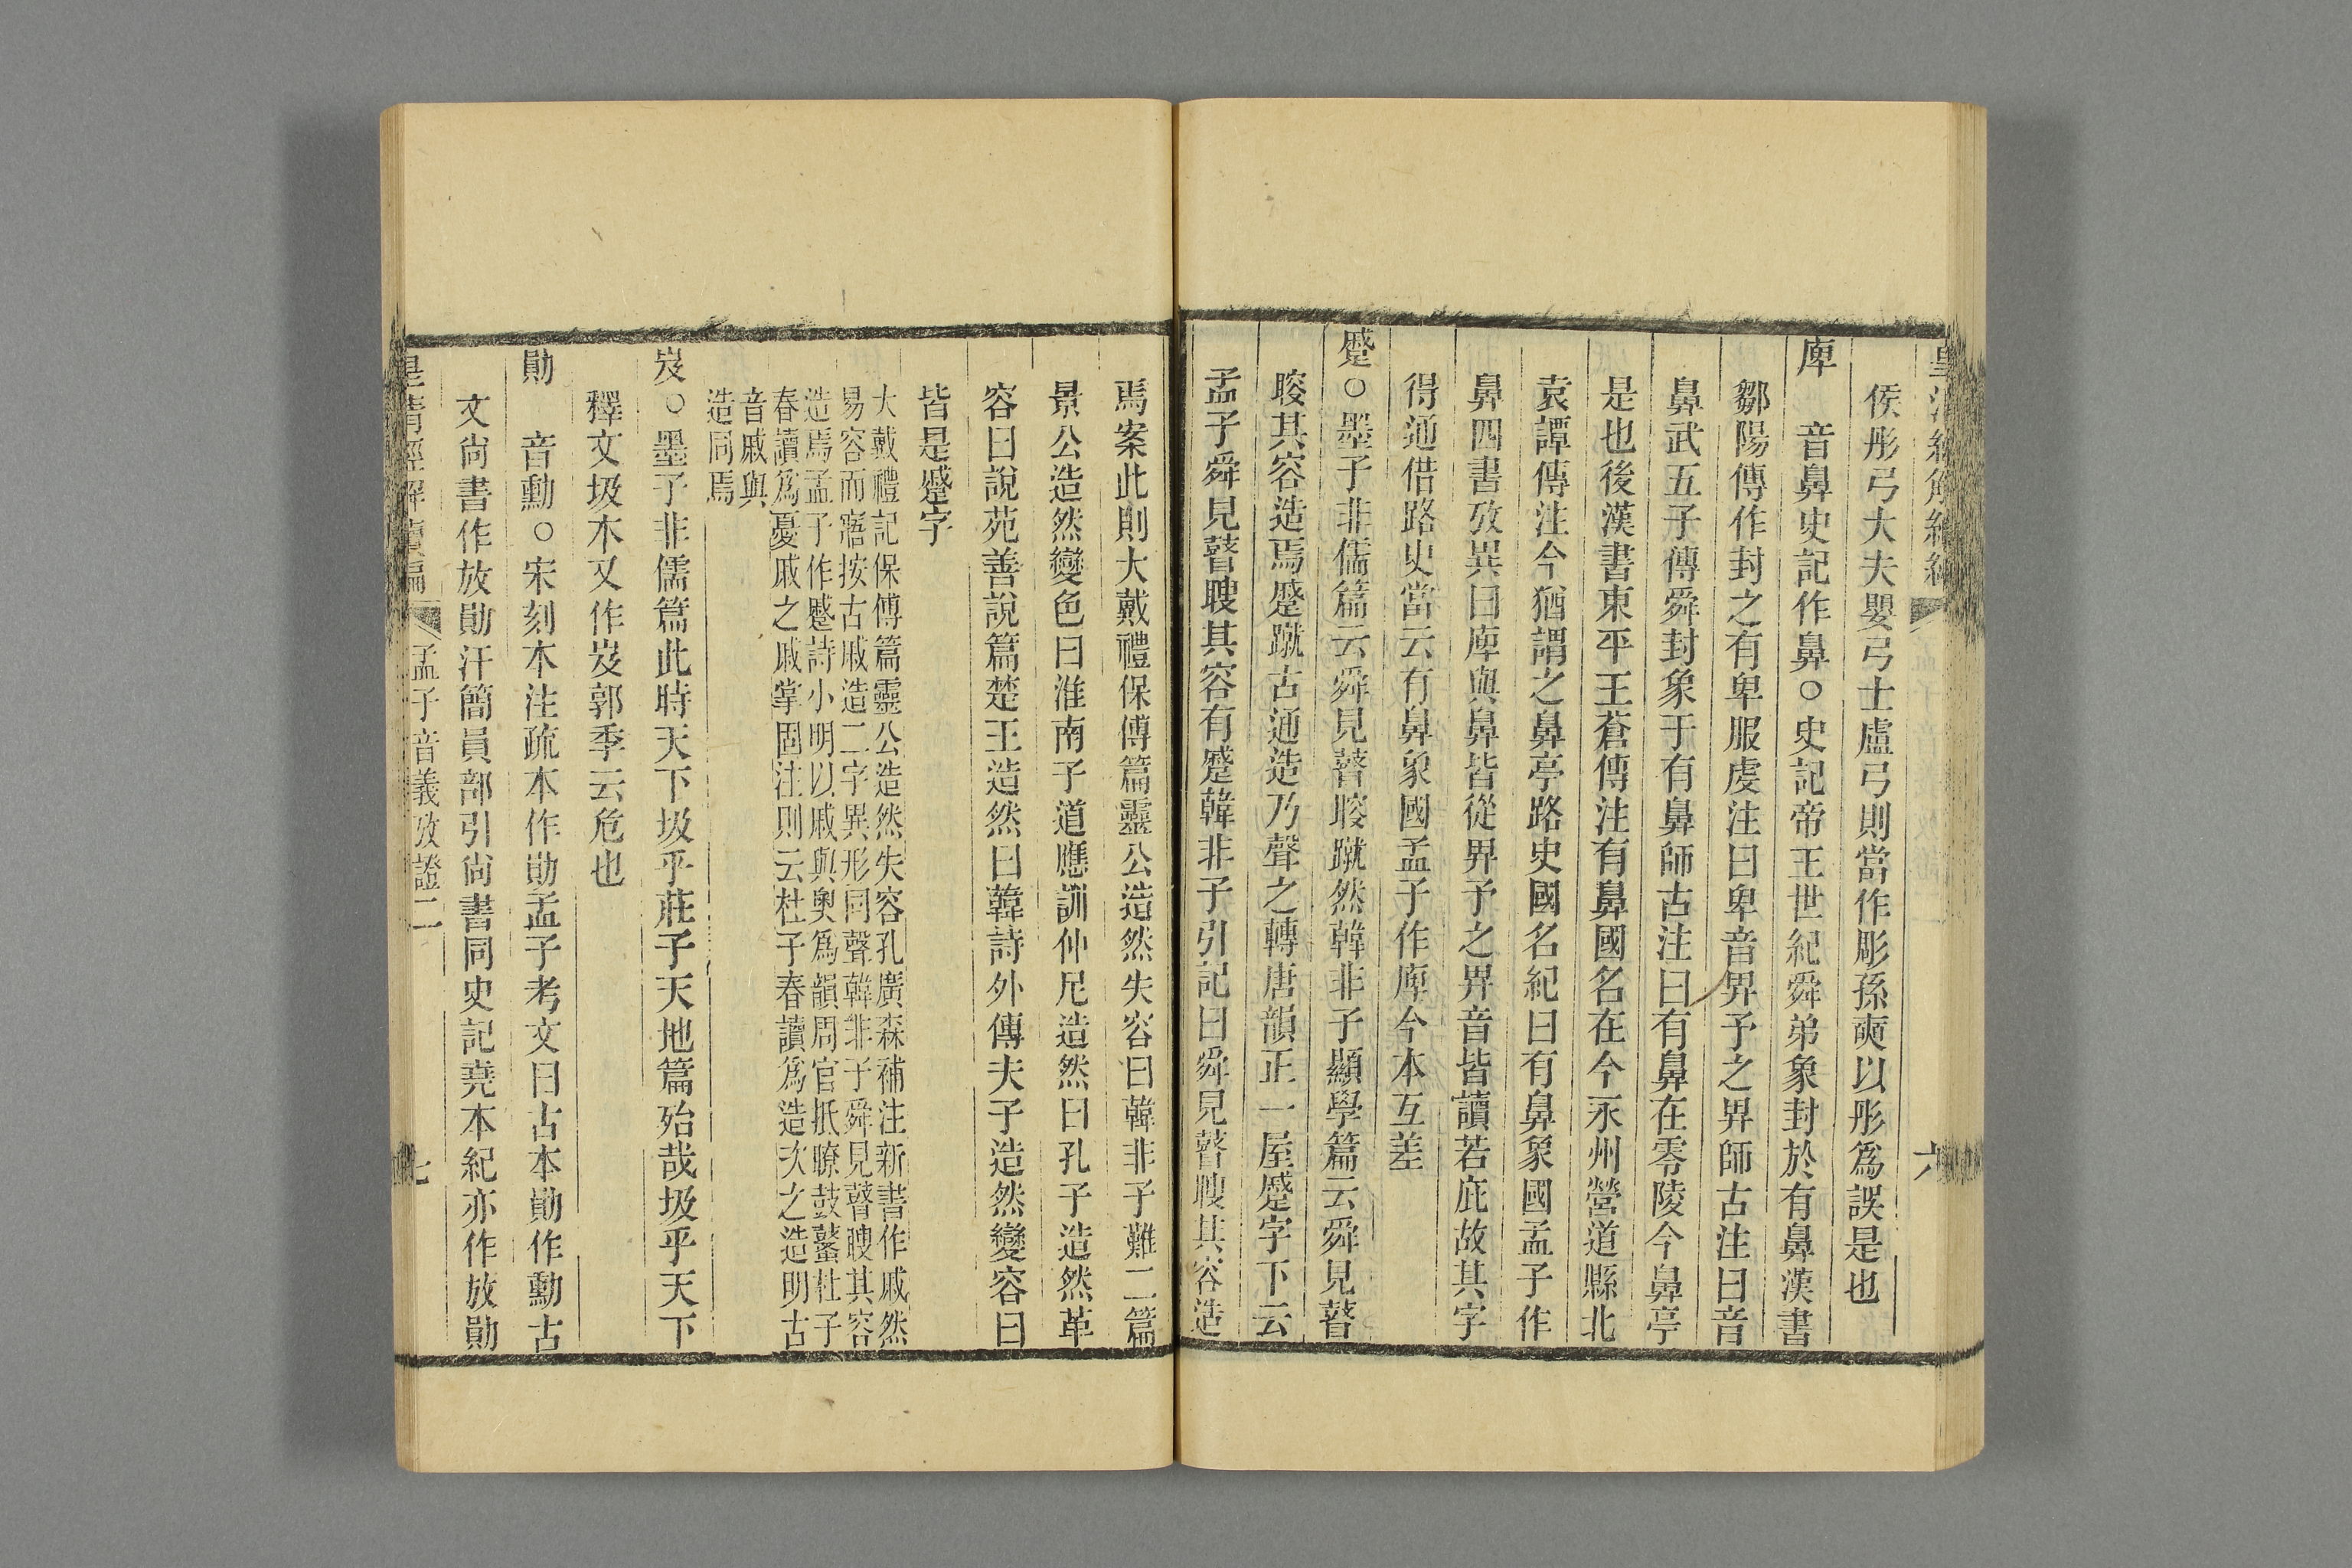 侯彤弓大夫嬰弓士盧弓則當作彫孫奭以彤爲誤是也
庳　音鼻史記作鼻○史記帝王世紀舜弟象封於有鼻漢書
鄒陽傳作封之有卑服虔注曰卑音畀予之畀師古注曰音
鼻武五子傳舜封象于有鼻師古注曰有鼻在零陵今鼻亭
是也後漢書東平王蒼傳注有鼻國名在今永州營道縣北
袁譚傳注今猶謂之鼻亭路史國名紀曰有鼻象國孟子作
鼻四書攷異曰庳與鼻皆從畀予之畀音皆讀若庇故其字
得通借路史當云有鼻象國孟子作庳今本互差
蹙○墨子非儒篇云舜見瞽睃蹴然韓非子顯學篇云舜見瞽
睃其容造焉蹙蹴古通造乃聲之轉唐韻正一屋蹙字下云
孟子舜見瞽瞍其容有蹙韓非子引記曰舜見瞽瞍其容造
焉案此則大戴禮保傅篇靈公造然失容曰韓非子難二篇
景公造然變色曰淮南子道應訓仲尼造然曰孔子造然革
容曰說苑善說篇楚王造然曰韓詩外傳夫子造然變容曰
皆是蹙字
大戴禮記保傅篇靈公造然失容孔廣森補注新書作戚然
易容而寤按古戚造二字異形同聲韓非子舜見瞽瞍其容
造焉孟子作蹙詩小明以戚與奧爲韻周官眡瞭鼓鼜杜子
春讀爲憂戚之戚掌固注則云杜子春讀爲造次之造明古
音戚與
造同焉
岌○墨子非儒篇此時天下圾乎莊子天地篇殆哉圾乎天下
釋文圾本又作岌郭季云危也
勛　音勳○宋刻本注疏本作勛孟子考文曰古本勛作勳古
文尚書作放勛汗簡員部引尚書同史記堯本紀亦作放勛
皇清經解續編　孟子音義攷證二　七